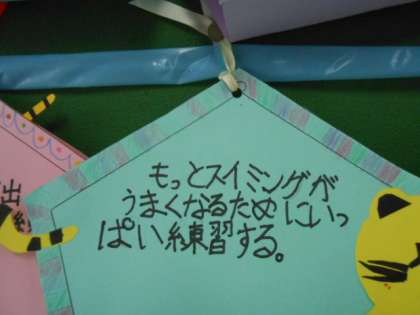 もっとスイミングが
うまくなるためにいっ
ぱい練習する。
出